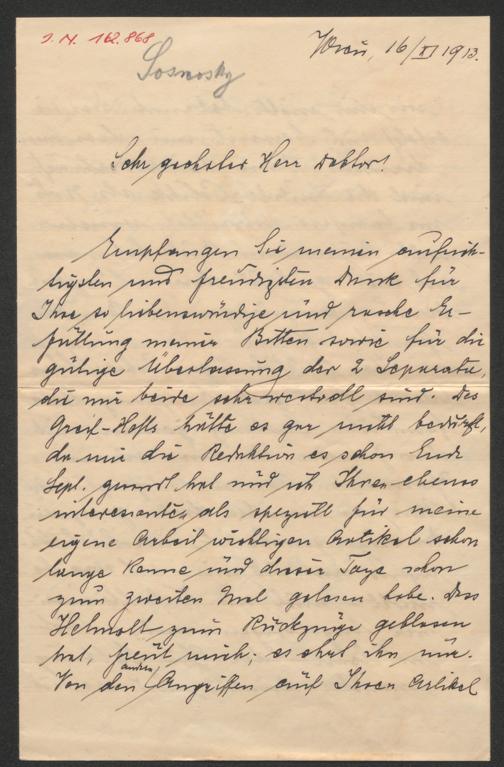 J. N. 162.868
Sosnosky
Wien, 16/XI 1913.
Sehr geehrter Herr Doktor!
Empfangen Sie meinen aufrich-
tigsten und freudigsten Dank für
Ihre so liebenswürdige und rasche Er-
füllung meiner Bitten sowie für die
gütige Überlassung der 2 Separata,
die mir beide sehr wertvoll sind. Des
Greif-Hefts hätte es gar nicht bedurft,
da mir die Redaktion es schon Ende
Sept. gesandt hat und ich Ihren ebenso
interessanten, als speziell für meine
eigene Arbeit wichtigen Artikel schon
lange kenne und dieser Tage schon
zum zweiten Mal gelesen habe. Dass
Helmolt zum Rückzuge geblasen
hat, freut mich; es ehrt ihn nur.
Von den andren Angriffen auf Ihren Artikel